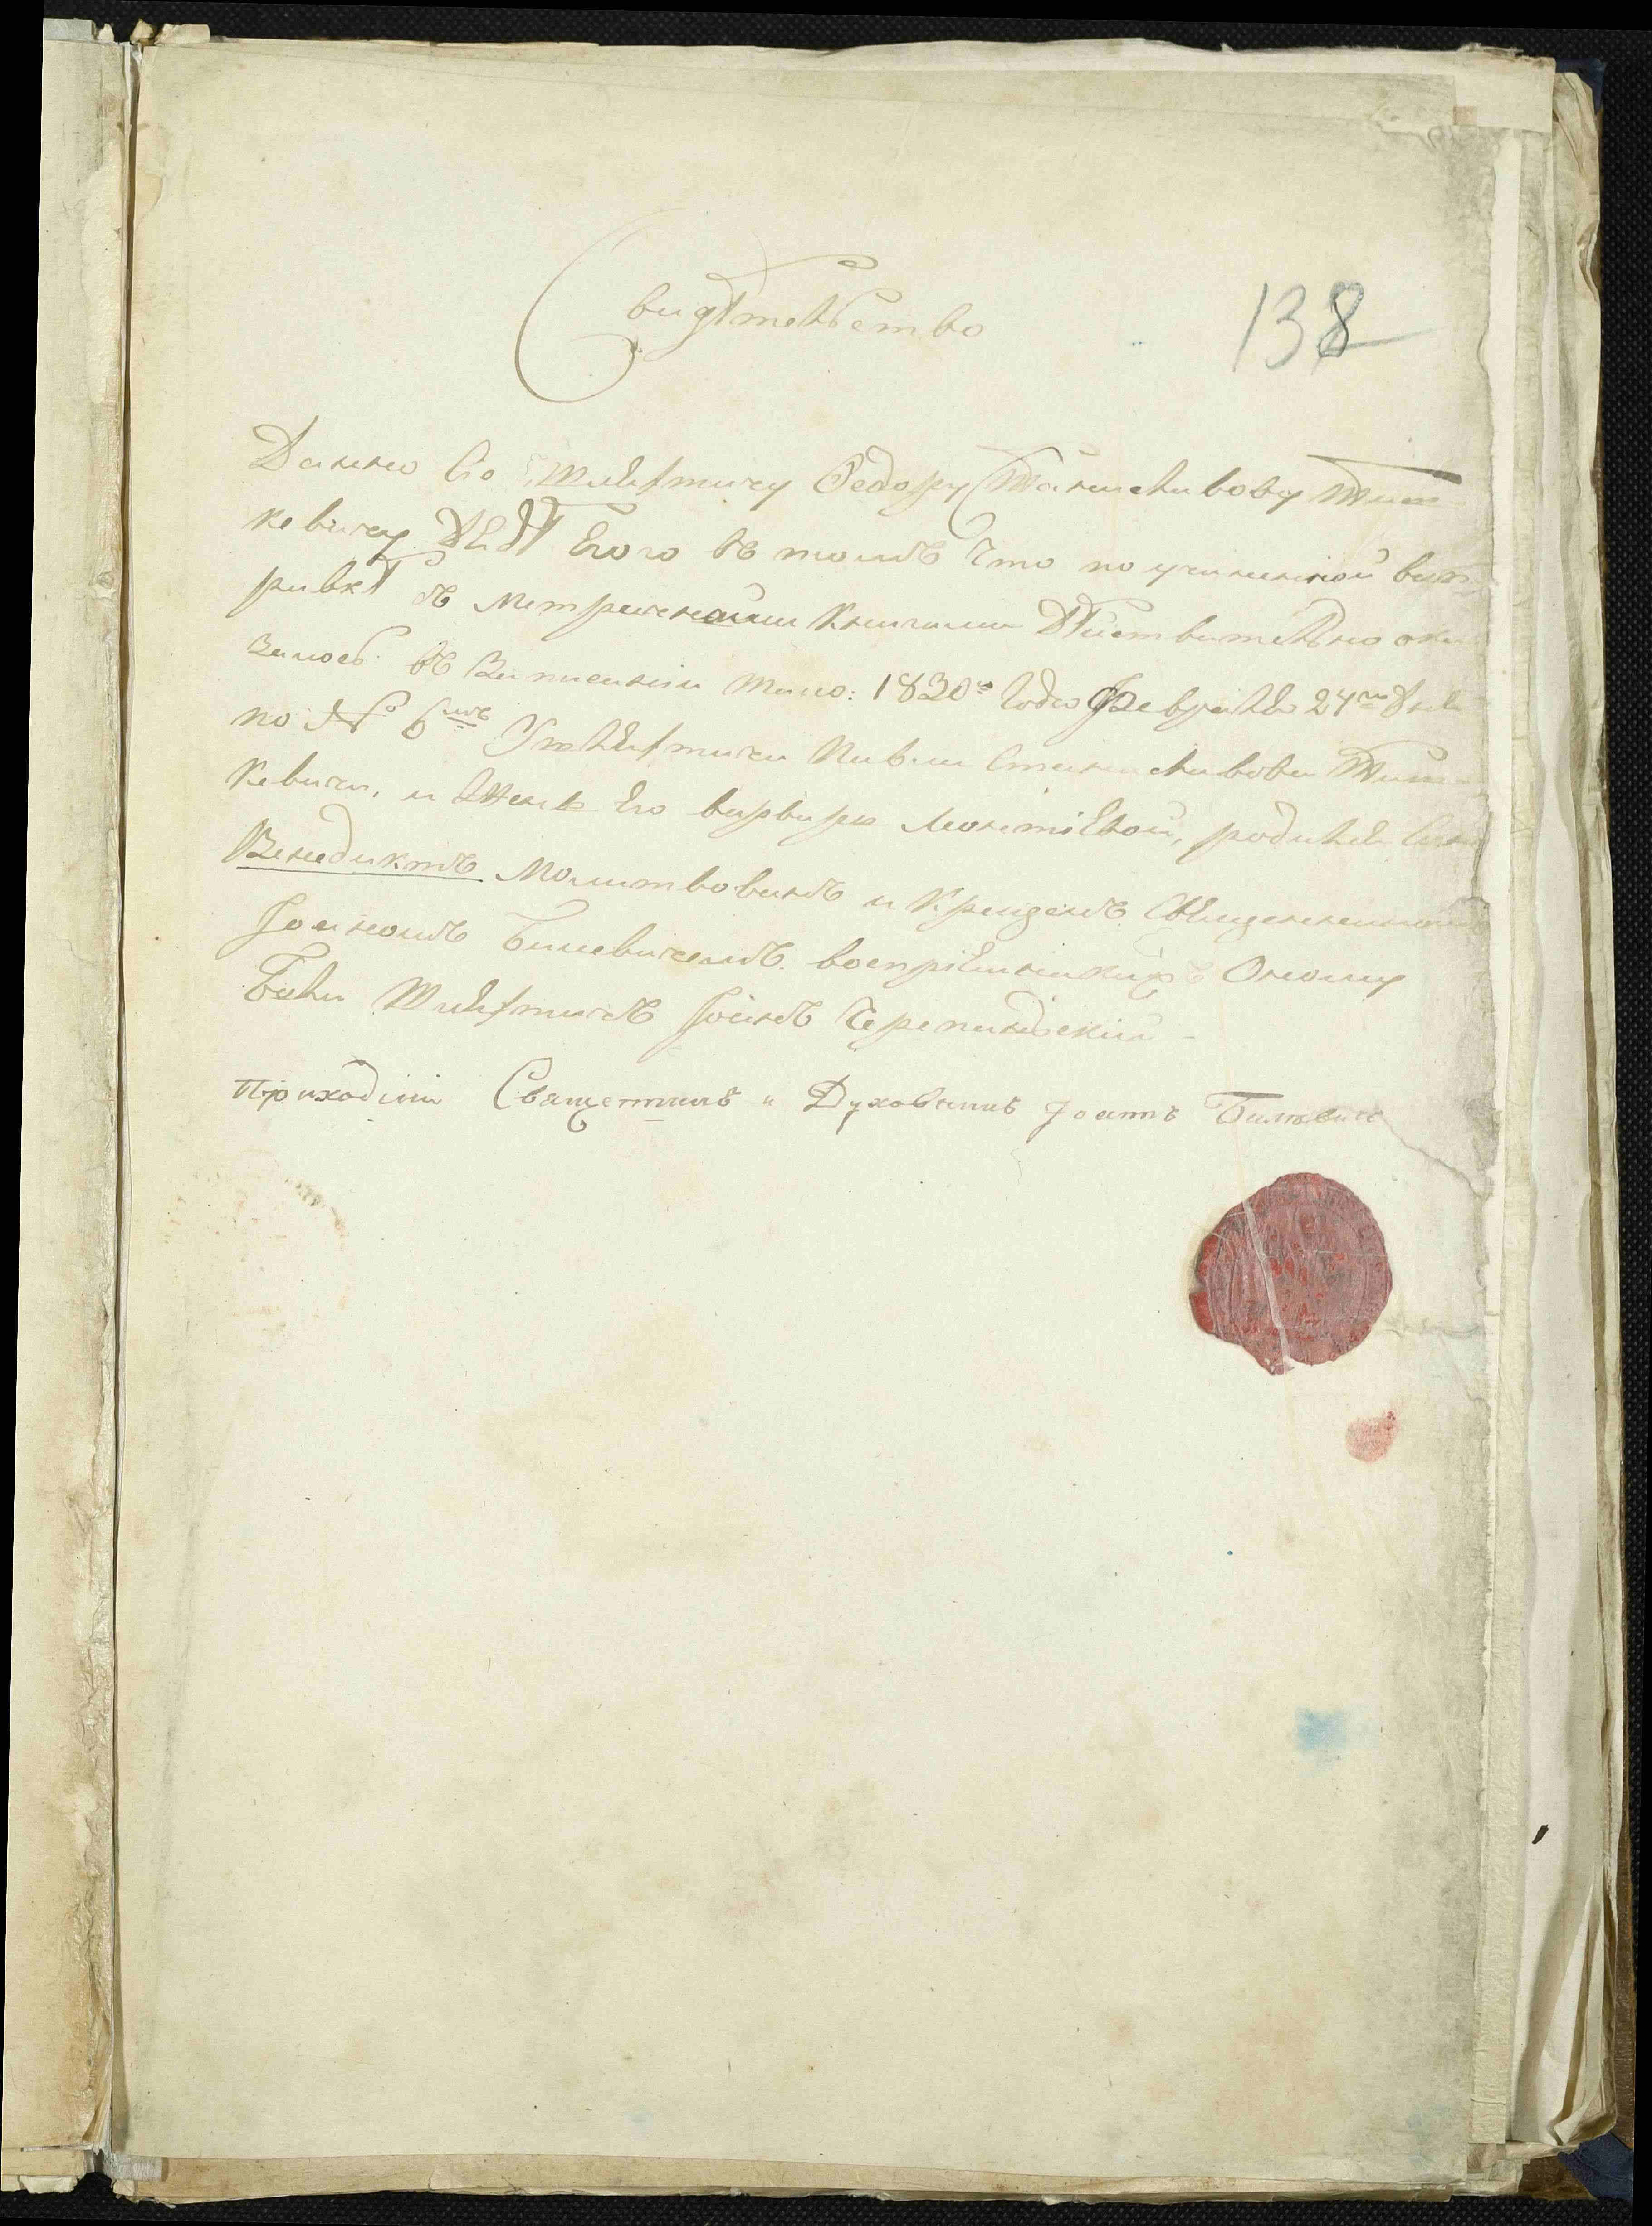 Свидѣтельство
138
Данно Сіо Шляхтичу Федору Станиславову Тиш
кевичу Дядѣ Его въ томъ что по учиненной вып
равкѣ съ метрическими книгами Дѣйствительно ока
залось въ записаніи тако: 1830го Года Февраля 24го дня
по № 6мъ У шляхтича Павла Станиславова Тиш
кевича, и Жены Его варвары Леонтіевой, родился Сынъ
Венедиктъ Молитвованъ и Крещенъ Священникомъ
Іоанномъ воспріемникомъ Оному
Былъ Шляхтичъ Іоанъ
Приходскій Священникъ и Духовникъ Іоаннъ